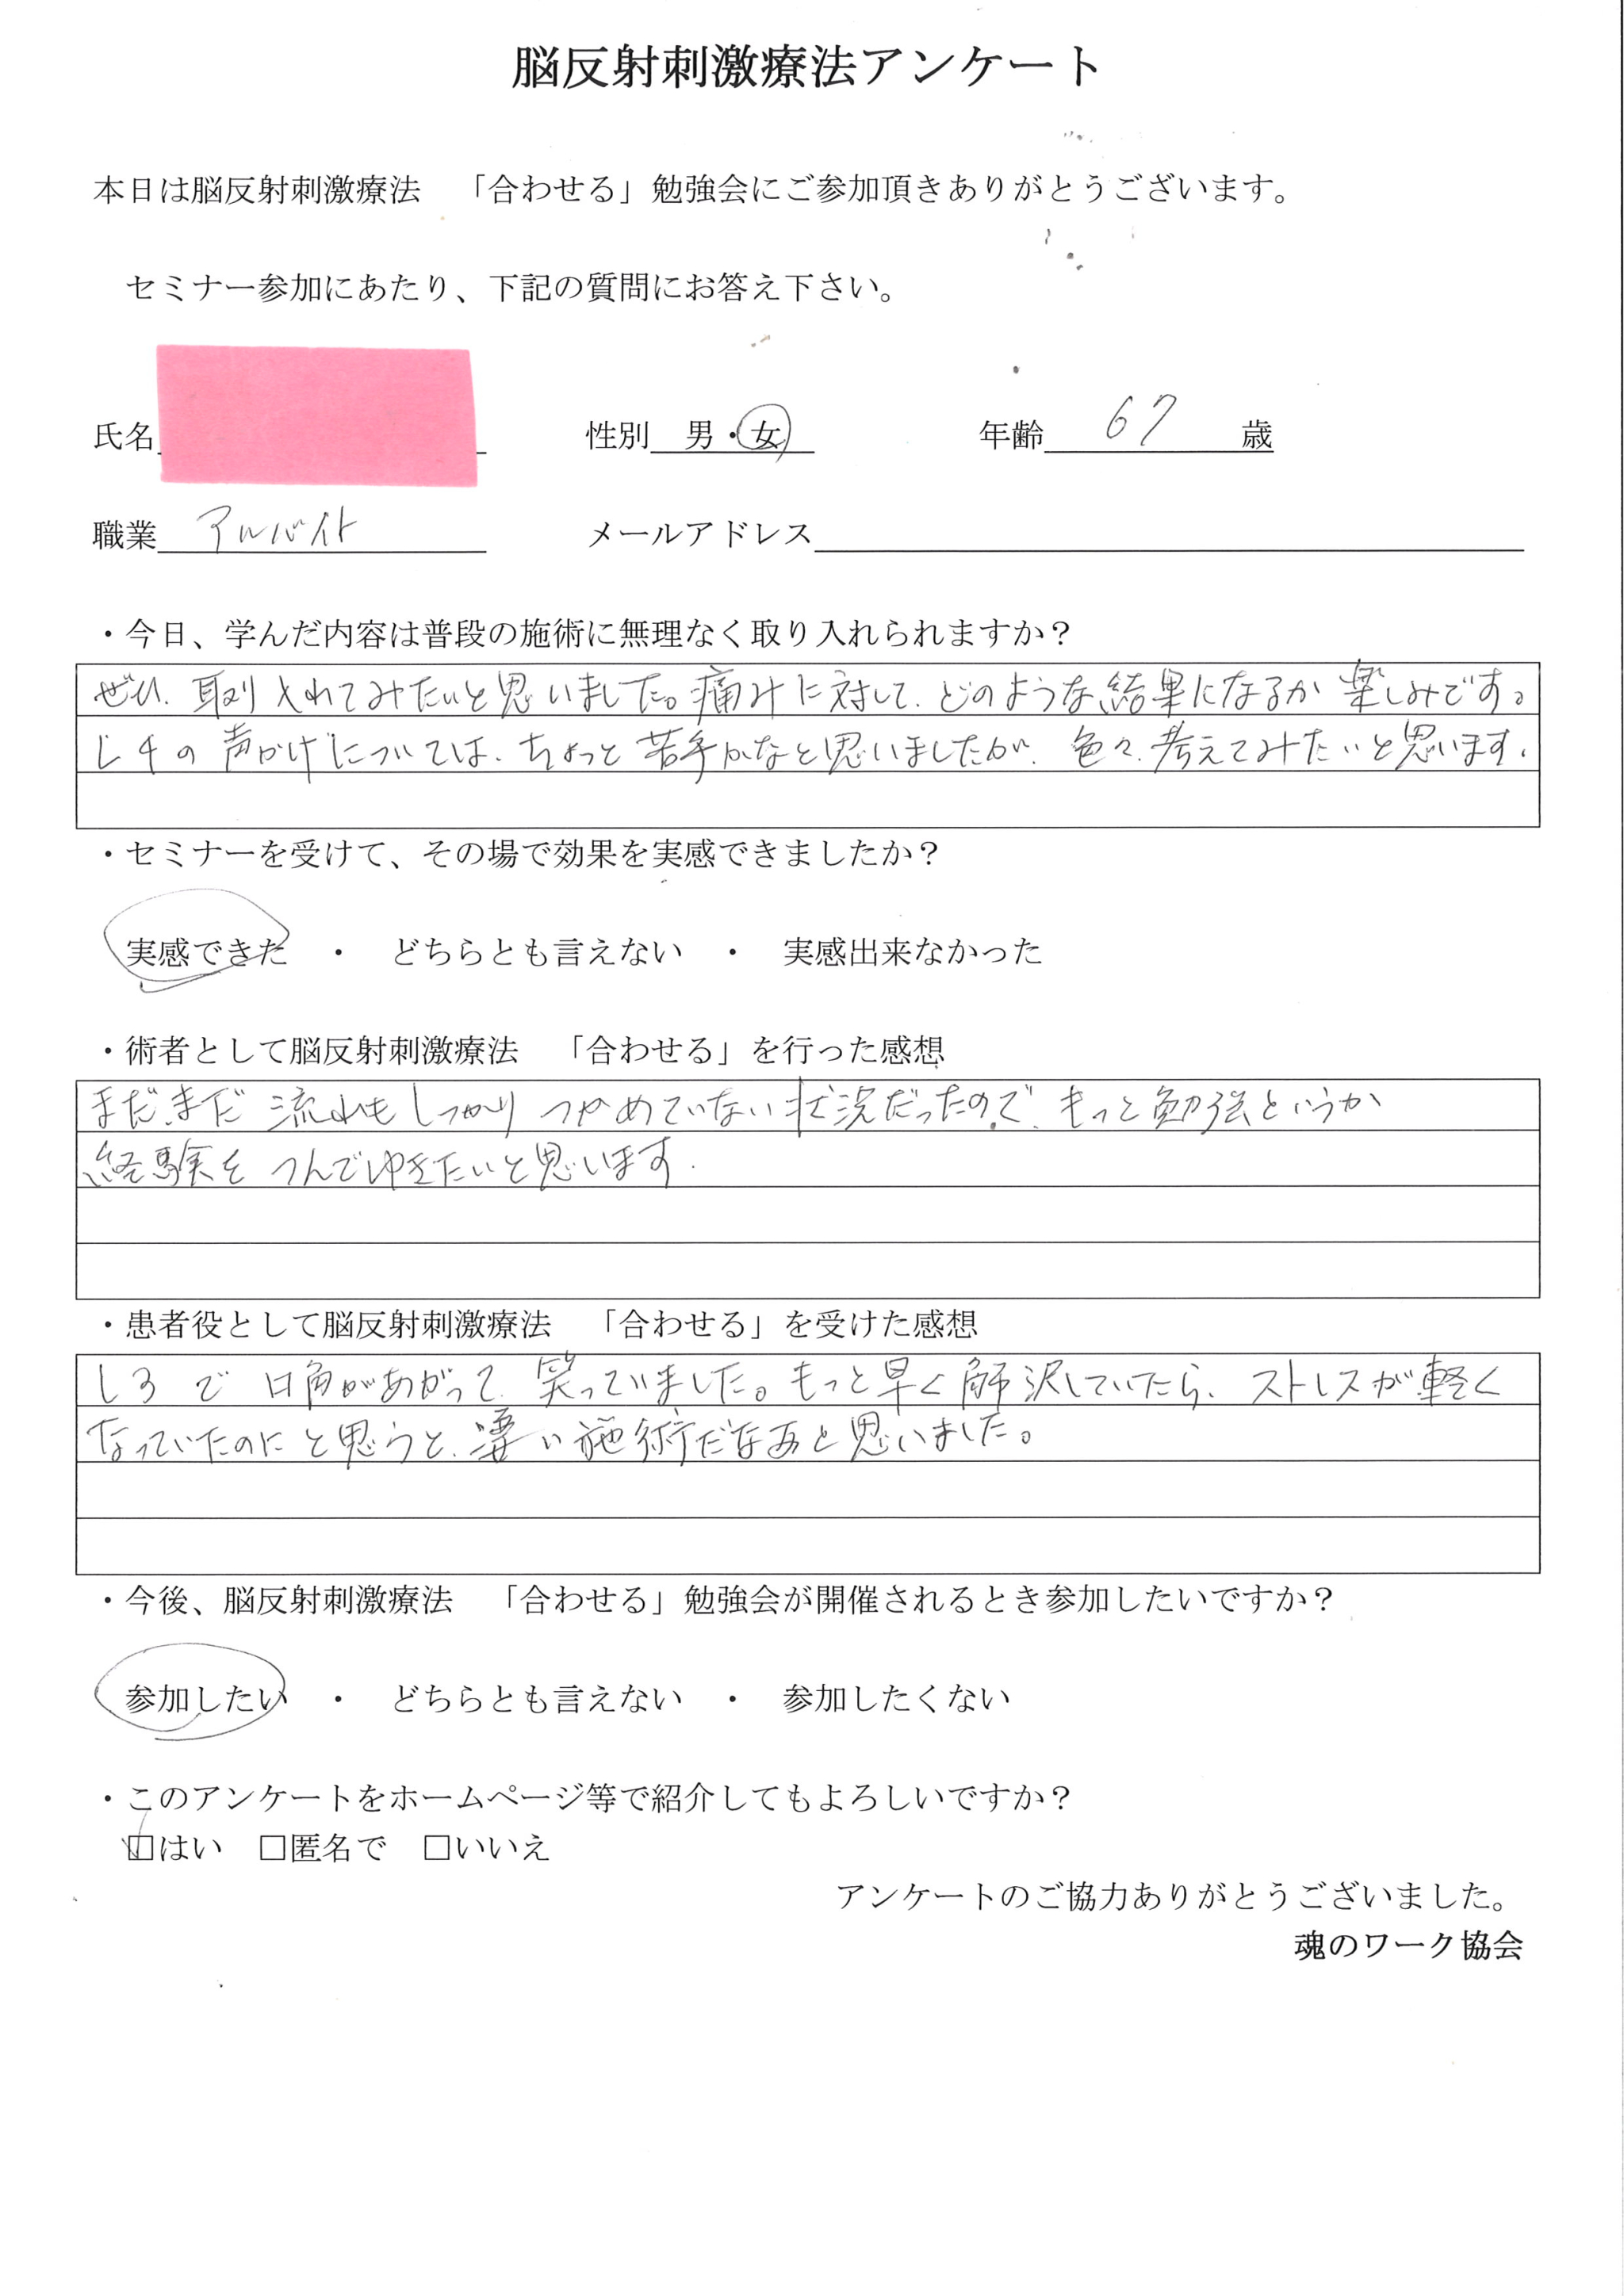 脳反射刺激療法アンケート
本日は脳反射刺激療法　「合わせる」勉強会にご参加頂きありがとうございます。
セミナー参加にあたり、下記の質問にお答え下さい。
氏名　性別　男・女　年齢　67　歳
職業　アルバイト　メールアドレス
・今日、学んだ内容は普段の施術に無理なく取り入れられますか？
ぜひ、取り入れてみたいと思いました。痛みに対して、どのような結果になるか楽しみです。
L4の声かけについては、ちょっと苦手かなと思いましたが、色々、考えてみたいと思います。
・セミナーを受けて、その場で効果を実感できましたか？
実感できた　・　どちらとも言えない　・　実感出来なかった
・術者として脳反射刺激療法　「合わせる」を行った感想
まだまだ流れもしっかりつかめていない状況だったので、もっと勉強というか
経験をつんでゆきたいと思います。
・患者役として脳反射刺激療法　「合わせる」を受けた感想
L3で口角があがって、笑っていました。もっと早く解択していたら、ストレスが軽く
なっていたのにと思うと、凄い施術だなあと思いました。
・今後、脳反射刺激療法　「合わせる」勉強会が開催されるとき参加したいですか？
参加したい　・　どちらとも言えない　・　参加したくない
・このアンケートをホームページ等で紹介してもよろしいですか？
☑はい　□匿名で　□いいえ
アンケートのご協力ありがとうございました。
魂のワーク協会